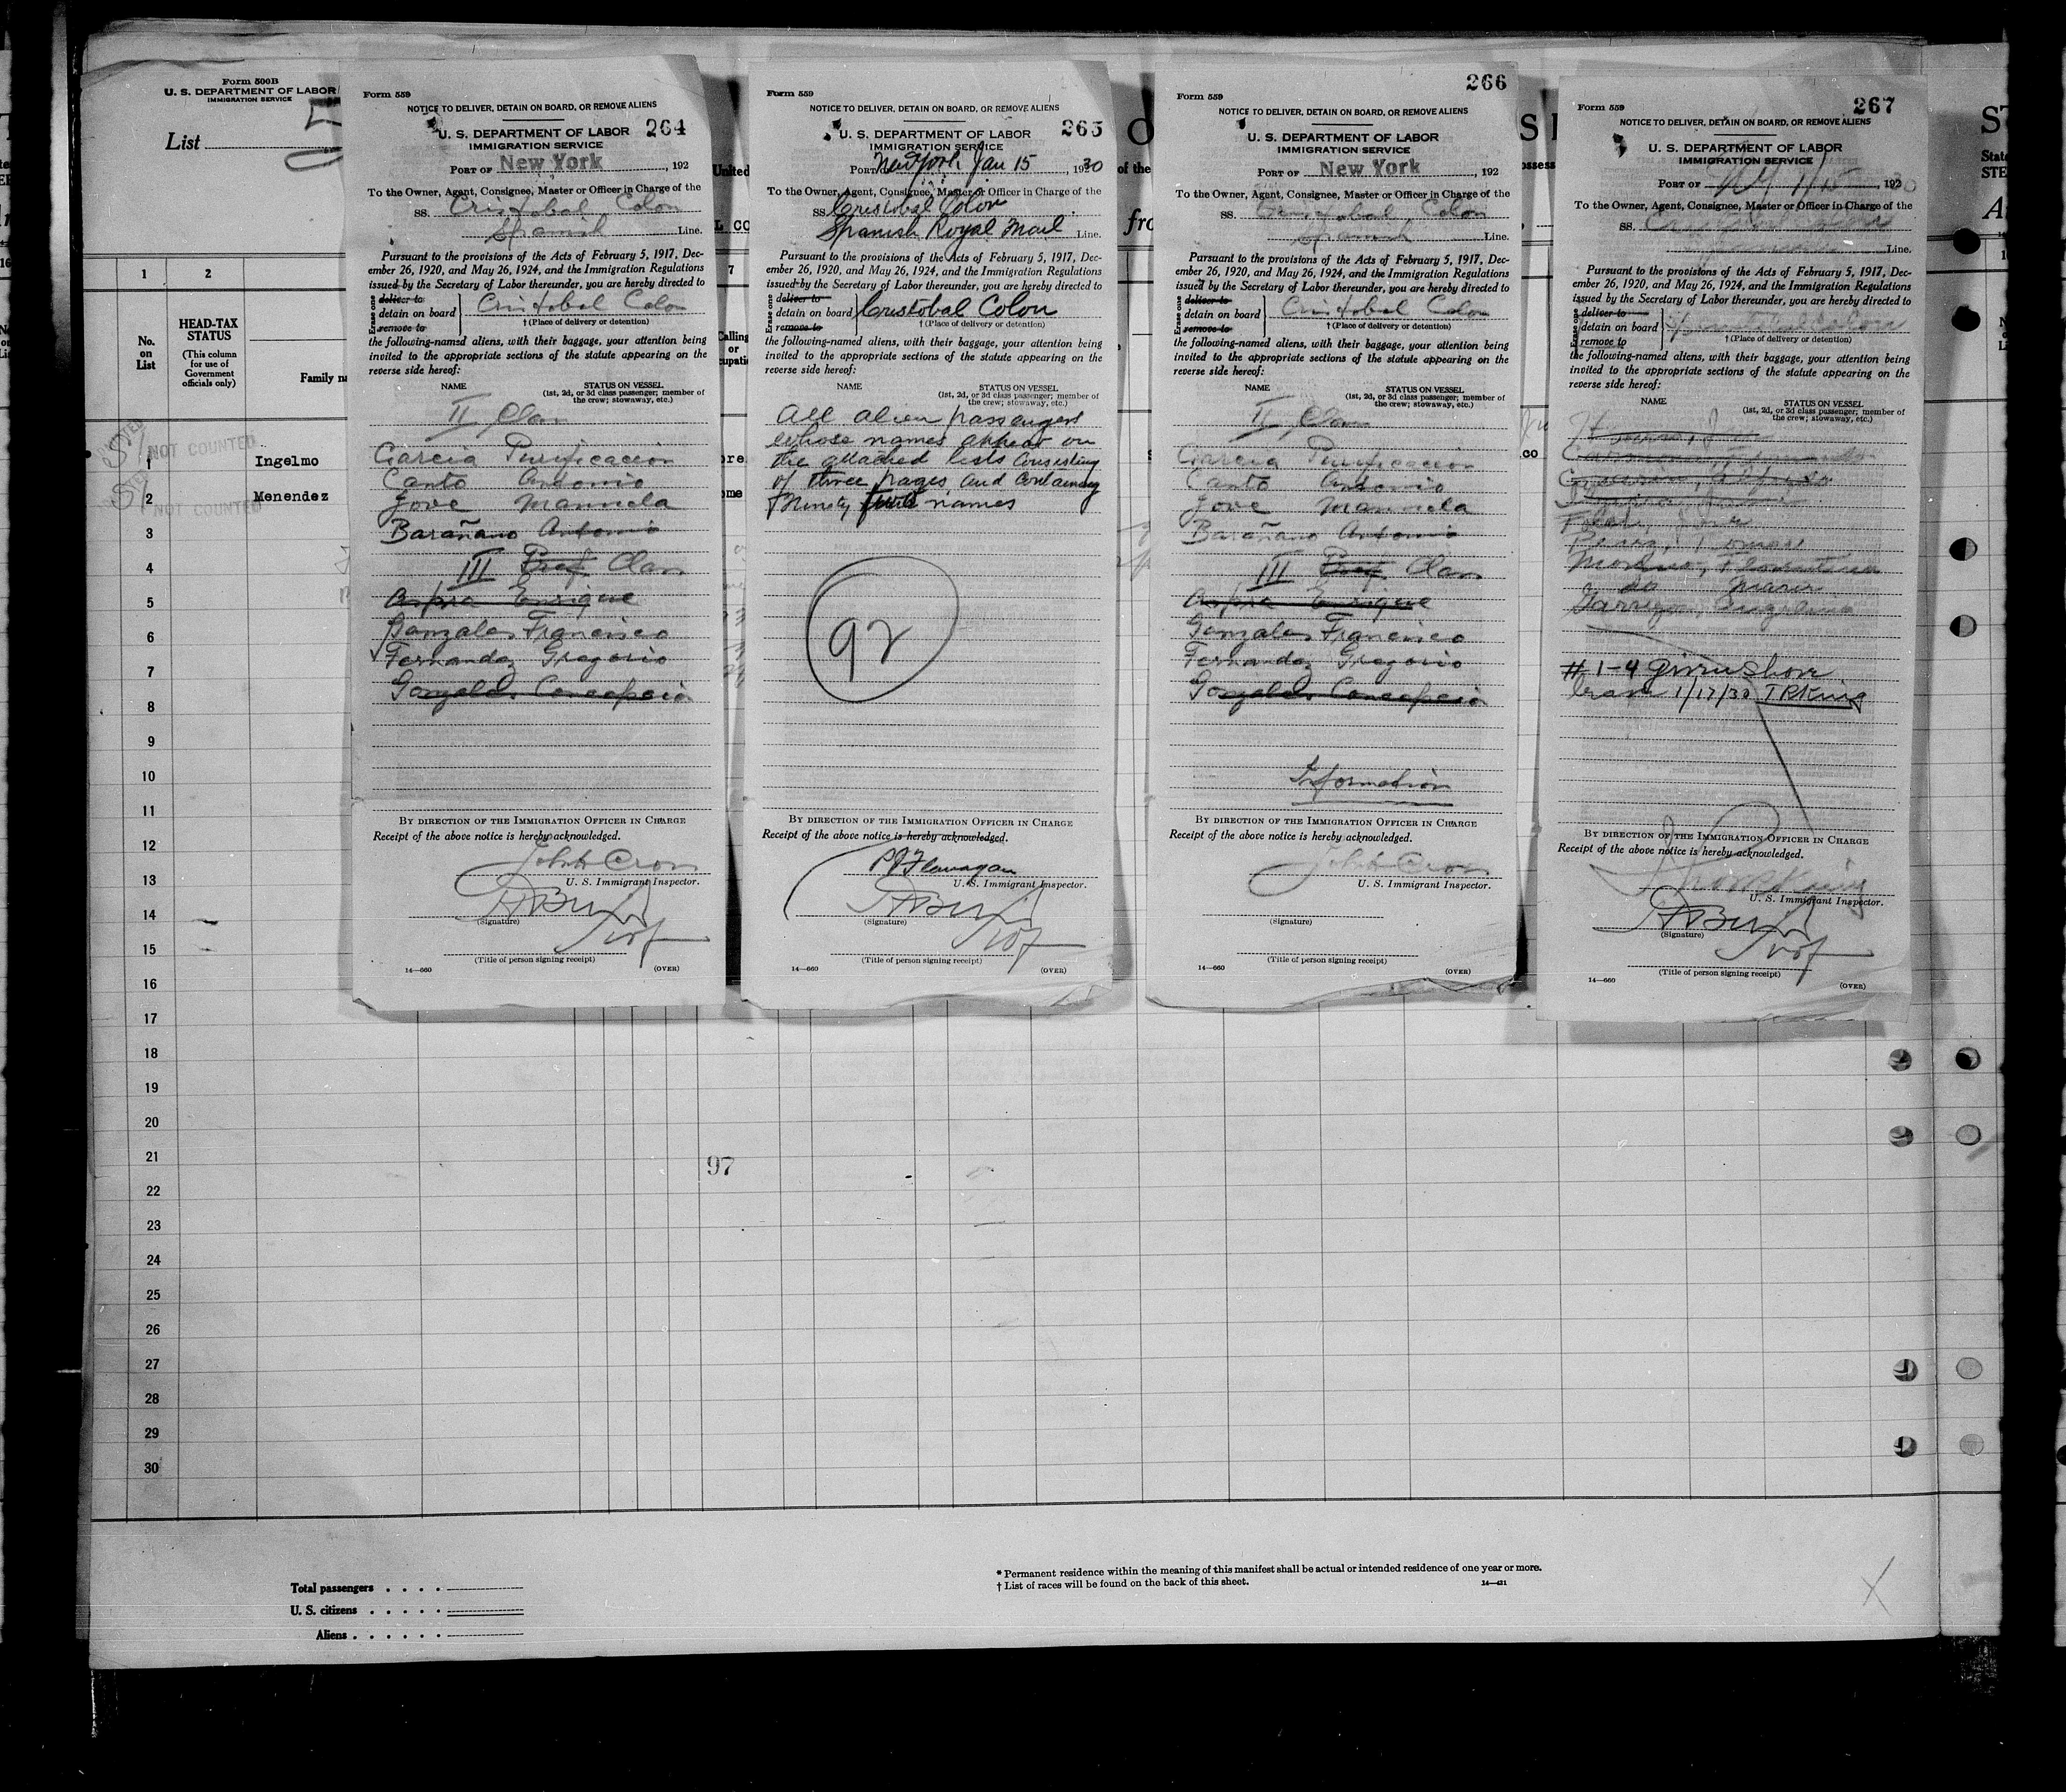 Form 500B
U. S. DEPARTMENT OF LABOR
IMMIGRATION SERVICE
List
1
2
No.
on
List
HEAD-TAX
STATUS
(This column
for use of
Government
officials only)
Family na
NOT COUNTED
1
Ingelmo
2
Menendez
NOT COUNTED
3
4
5
6
7
8
9
10
11
12
13
14
15
16
17
18
19
20
21
22
23
24
25
26
27
28
29
30
97
Form 559
NOTICE TO DELIVER, DETAIN ON BOARD, OR REMOVE ALIENS
U. S. DEPARTMENT OF LABOR 264
IMMIGRATION SERVICE
PORT OF New York, 192
To the Owner, Agent, Consignee, Master or Officer in Charge of the
SS. Cristobal Colon
Spanish Line.
Pursuant to the provisions of the Acts of February 5, 1917, Dec-
ember 26, 1920, and May 26, 1924, and the Immigration Regulations
issued by the Secretary of Labor thereunder, you are hereby directed to
Erase one
deliver to
detain on board
remove to
Cristobal Colon
† (Place of delivery or detention)
the following-named aliens, with their baggage, your attention being
invited to the appropriate sections of the statute appearing on the
reverse side hereof:
NAME
STATUS ON VESSEL
(1st, 2d, or 3d class passenger; member of
the crew; stowaway, etc.)
II Class
Garcia Purificacion
Canto Antonio
Jove Manuela
Barañano Antonio
III Pref. Class
Enrique
Gonzales Francisco
Fernandez Gregorio
Gonzales Concepcion
BY DIRECTION OF THE IMMIGRATION OFFICER IN CHARGE
Receipt of the above notice is hereby acknowledged.
John Cron
U. S. Immigrant Inspector.
(Signature)
(Title of person signing receipt)
14—660
(OVER)
Form 559
NOTICE TO DELIVER, DETAIN ON BOARD, OR REMOVE ALIENS
U. S. DEPARTMENT OF LABOR 265
IMMIGRATION SERVICE
PORT OF New York Jan 15, 1930
To the Owner, Agent, Consignee, Master or Officer in Charge of the
SS. Cristobal Colon
Spanish Royal Mail Line.
Pursuant to the provisions of the Acts of February 5, 1917, Dec-
ember 26, 1920, and May 26, 1924, and the Immigration Regulations
issued by the Secretary of Labor thereunder, you are hereby directed to
Erase one
deliver to
detain on board
remove to
Cristobal Colon
† (Place of delivery or detention)
the following-named aliens, with their baggage, your attention being
invited to the appropriate sections of the statute appearing on the
reverse side hereof:
NAME
STATUS ON VESSEL
(1st, 2d, or 3d class passenger; member of
the crew; stowaway, etc.)
All alien passengers
whose names appear on
the attached lists consisting
of three pages and containing
Ninety names
92
BY DIRECTION OF THE IMMIGRATION OFFICER IN CHARGE
Receipt of the above notice is hereby acknowledged.
P J Flanagan
U. S. Immigrant Inspector.
(Signature)
(Title of person signing receipt)
14—660
(OVER)
266
Form 559
NOTICE TO DELIVER, DETAIN ON BOARD, OR REMOVE ALIENS
U. S. DEPARTMENT OF LABOR
IMMIGRATION SERVICE
PORT OF New York, 192
To the Owner, Agent, Consignee, Master or Officer in Charge of the
SS. Cristobal Colon
Spanish Line.
Pursuant to the provisions of the Acts of February 5, 1917, Dec-
ember 26, 1920, and May 26, 1924, and the Immigration Regulations
issued by the Secretary of Labor thereunder, you are hereby directed to
Erase one
deliver to
detain on board
remove to
Cristobal Colon
† (Place of delivery or detention)
the following-named aliens, with their baggage, your attention being
invited to the appropriate sections of the statute appearing on the
reverse side hereof:
NAME
STATUS ON VESSEL
(1st, 2d, or 3d class passenger; member of
the crew; stowaway, etc.)
II Class
Garcia Purificacion
Canto Antonio
Jove Manuela
Barañano Antonio
III Pref. Class
Enrique
Gonzales Francisco
Fernandez Gregorio
Gonzales Concepcion
Information
BY DIRECTION OF THE IMMIGRATION OFFICER IN CHARGE
Receipt of the above notice is hereby acknowledged.
John Cron
U. S. Immigrant Inspector.
(Signature)
(Title of person signing receipt)
14—660
(OVER)
267
Form 559
NOTICE TO DELIVER, DETAIN ON BOARD, OR REMOVE ALIENS
U. S. DEPARTMENT OF LABOR
IMMIGRATION SERVICE
PORT OF NY 1/15, 1930
To the Owner, Agent, Consignee, Master or Officer in Charge of the
SS. Cristobal Colon
Line.
Pursuant to the provisions of the Acts of February 5, 1917, Dec-
ember 26, 1920, and May 26, 1924, and the Immigration Regulations
issued by the Secretary of Labor thereunder, you are hereby directed to
Erase one
deliver to
detain on board
remove to
Cristobal Colon
† (Place of delivery or detention)
the following-named aliens, with their baggage, your attention being
invited to the appropriate sections of the statute appearing on the
reverse side hereof:
NAME
STATUS ON VESSEL
(1st, 2d, or 3d class passenger; member of
the crew; stowaway, etc.)
Alfredo
Moreno, Florentina
do
# 1-4 given shore
leave 1/17/30 T R King
BY DIRECTION OF THE IMMIGRATION OFFICER IN CHARGE
Receipt of the above notice is hereby acknowledged.
King
U. S. Immigrant Inspector.
(Signature)
(Title of person signing receipt)
14—660
(OVER)
Total passengers
U. S. citizens
Aliens
* Permanent residence within the meaning of this manifest shall be actual or intended residence of one year or more.
† List of races will be found on the back of this sheet.
14—431